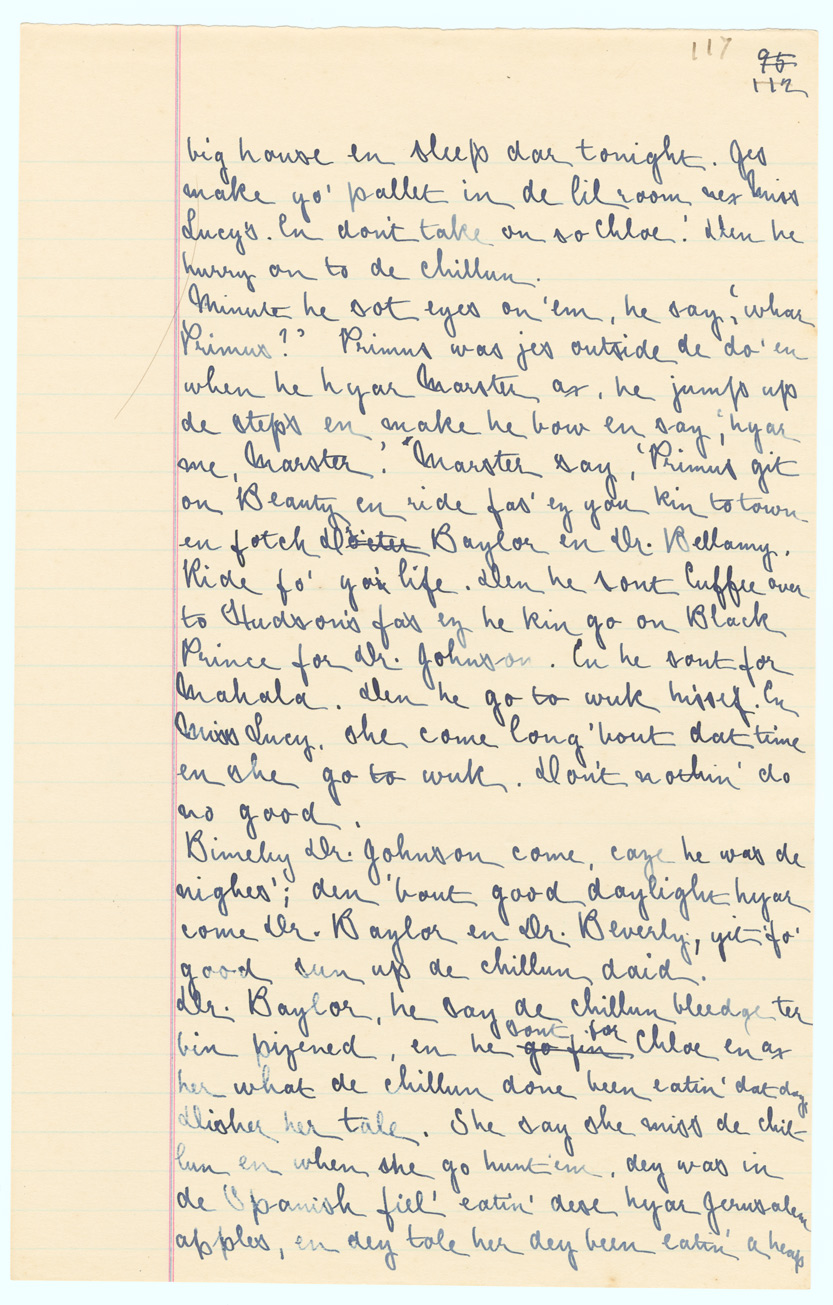 117
95
112
big house en sleep dar tonight. Jes
make yo' pallet in de lil room nex Miss
Lucy's. En don't take on so Chloe.' Den he
hurry on to de chillun.
Minute he sot eyes on 'em, he say, 'whar
Primus?' Primus was jes outside de do' en
when he hyar Marster ax, he jump up
de steps en make he bow en say, 'hyar
me, Marster.' "Marster say, 'Primus git
on Beauty en ride fas' ez you kin to town
en fotch Dr. Baylor en Dr. Bellamy.
Ride fo' yo' life. Den he sont Cuffee over
to Hudson's fas ez he kin go on Black
Prince for Dr. Johnson. En he sont for
Mahala. Den he go to wuk hissef. En
Miss Lucy, she come long 'bout dat time
en she go to wuk. Don't nothin' do
no good.
Bimeby Dr. Johnson come, caze he was de
nighes'; den 'bout good daylight hyar
come Dr. Baylor en Dr. Beverly, yit 'fo'
good sun up de chillun daid.
Dr. Baylor, he say de chillun bleedge ter
bin pizened, en he go fin sont for Chloe en ax
her what de chillun done been eatin' dat day
Disher her tale. She say she miss de chil-
lun en when she go hunt 'em, dey was in
de Spanish fiel' eatin' dese hyar Jerusalem
apples, en dey tole her dey been eatin' a heap